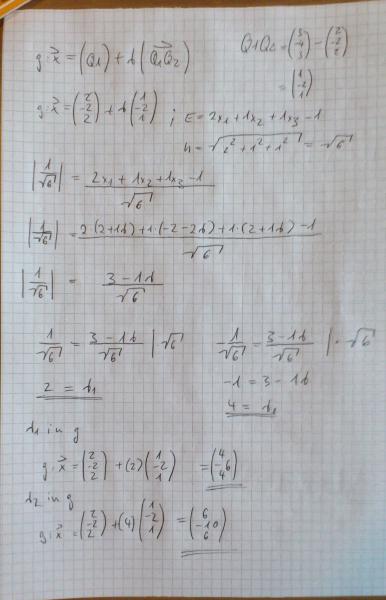 g: x⃗ = (Q1) + b (Q1Q2)
Q1Q2 = (3 -4 3) - (2 -2 2)
= (1 -2 1)
g: x⃗ = (2 -2 2) + b (1 -2 1) ; E = 2x1 + 1x2 + 1x3 - 1
n = √(2² + 1² + 1²) = √6
|1/√6| = (2x1 + 1x2 + 1x3 - 1)/√6
|1/√6| = (2·(2+1b) + 1·(-2-2b) + 1·(2+1b) - 1)/√6
|1/√6| = (3 - 1b)/√6
1/√6 = (3 - 1b)/√6 | √6
1/√6 = (3 - 1b)/√6 | · √6
-1 = 3 - 1b
2 = b1
4 = b2
b1 in g
g: x⃗ = (2 -2 2) + (2) (1 -2 1) = (4 -6 4)
b2 in g
g: x⃗ = (2 -2 2) + (4) (1 -2 1) = (6 -10 6)